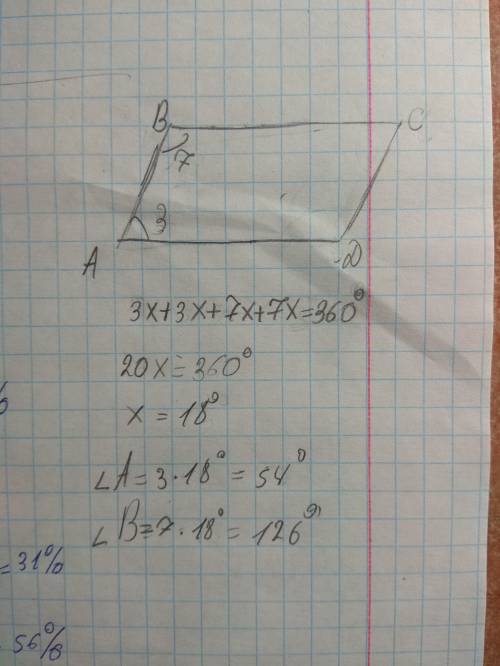 B C
7
3
A D
3x+3x+7x+7x=360°
20x=360°
x=18°
∠A=3·18°=54°
∠B=7·18°=126°
%
=31%
56%